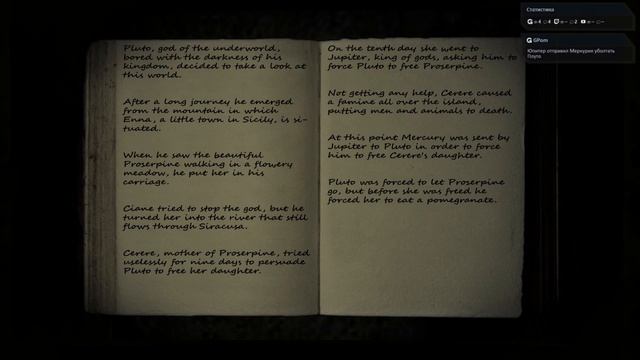 Pluto, god of the underworld,
bored with the darkness of his
kingdom, decided to take a look at
this world.
After a long journey he emerged
from the mountain in which
Enna, a little town in Sicily, is si-
tuated.
When he saw the beautiful
Proserpine walking in a flowery
meadow, he put her in his
carriage.
Ciane tried to stop the god, but he
turned her into the river that still
flows through Siracusa.
Cerere, mother of Proserpine, tried
uselessly for nine days to persuade
Pluto to free her daughter.
On the tenth day she went to
Jupiter, king of gods, asking him to
force Pluto to free Proserpine.
Not getting any help, Cerere caused
a famine all over the island,
putting men and animals to death.
At this point Mercury was sent by
Jupiter to Pluto in order to force
him to free Cerere's daughter.
Pluto was forced to let Proserpine
go, but before she was freed he
forced her to eat a pomegranate.
Статистика
4 4 2
GPom
Юпитер отправил Меркурия убалтать
Плуто